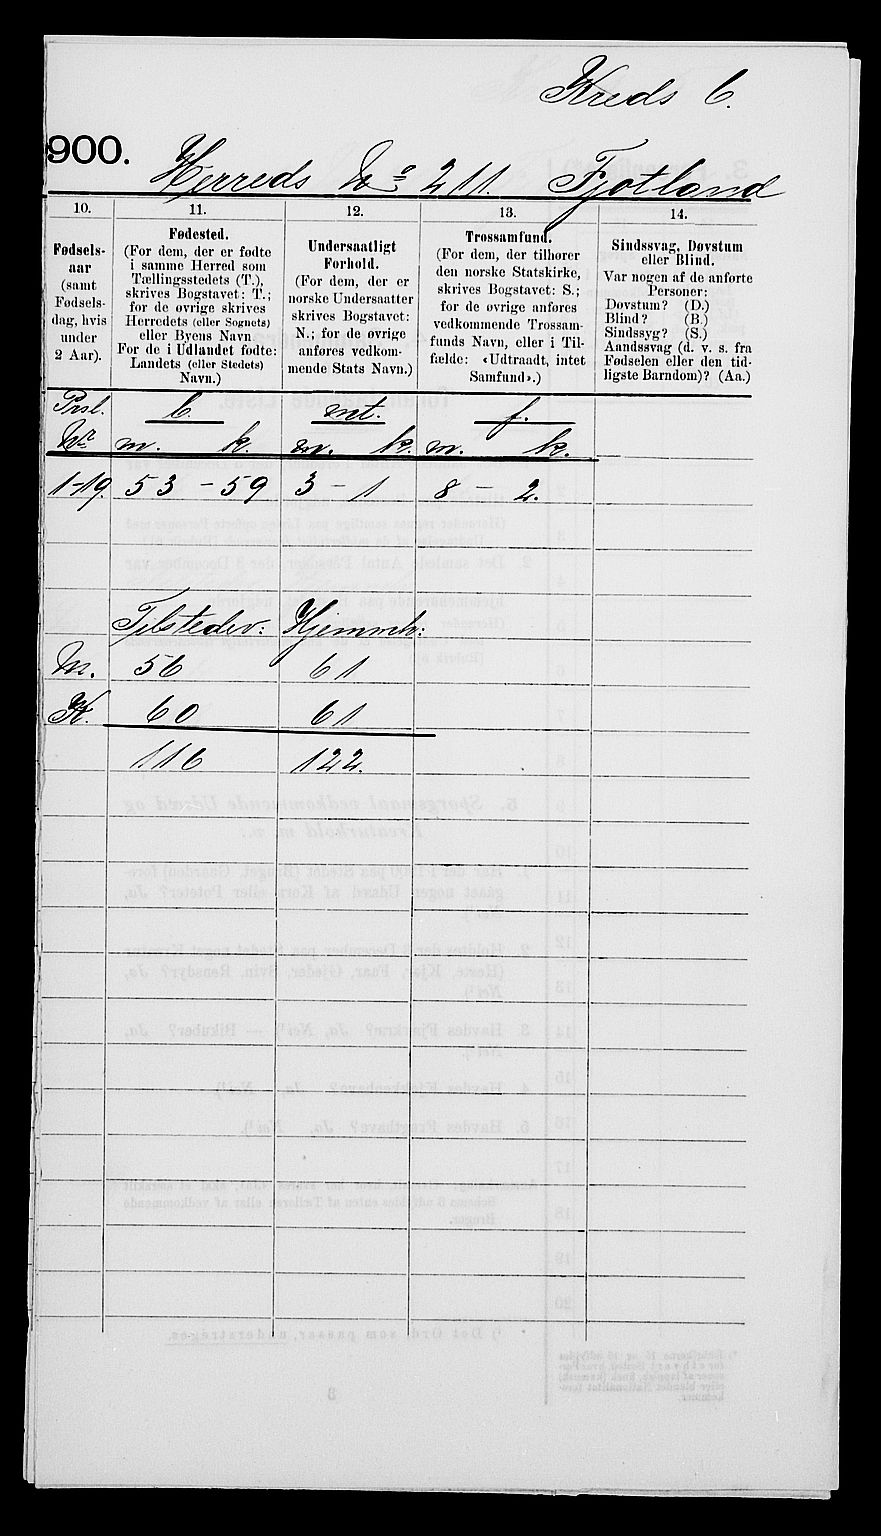 Kreds 6.
900.
Herreds No 211. Fjotland
10.
Fødsels-
aar
(samt
Fødsels-
dag, hvis
under
2 Aar).
11.
Fødested.
(For dem, der er fødte
i samme Herred som
Tællingsstedets (T.),
skrives Bogstavet: T.;
for de øvrige skrives
Herredets (eller Sognets)
eller Byens Navn
For de i Udlandet fødte:
Landets (eller Stedets)
Navn.)
12.
Undersaatligt
Forhold.
(For dem, der er
norske Undersaatter
skrives Bogstavet:
N.; for de øvrige
anføres vedkom-
mende Stats Navn.)
13.
Trossamfund.
(For dem, der tilhører
den norske Statskirke,
skrives Bogstavet: S.;
for de øvrige anføres
vedkommende Trossam-
funds Navn, eller i Til-
fælde: «Udtraadt, intet
Samfund».)
14.
Sindssvag, Døvstum
eller Blind.
Var nogen af de anførte
Personer:
Døvstum? (D.)
Blind? (B.)
Sindssyg? (S.)
Aandssvag (d. v. s. fra
Fødselen eller den tid-
ligste Barndom)? (Aa.)
Prsl. b. mt. f.
Nr m. k. m. k. m. k.
1-19. 53 - 59 3 - 1 8 - 2.
Tilstedev: Hjemmeh:
M. 56 61
K. 60 61
116 122.